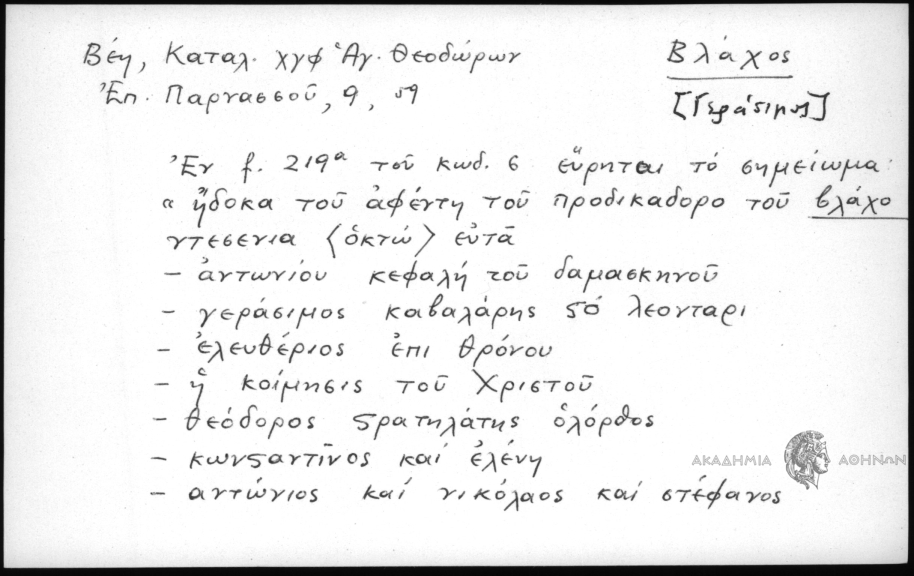 Βέη, Καταλ. χγφ Ἁγ. Θεοδώρων
Ἐπ. Παρνασσοῦ, 9, 59
Βλάχος
[Γεράσιμος]
Ἐν f. 219α τοῦ κωδ. 6 εὕρηται τό σημείωμα:
« ἤδοκα τοῦ ἀφέντη τοῦ προδικαδορο τοῦ βλάχο
ντεσενια ⟨ὀκτώ⟩ εὐτᾶ
– ἀντωνίου κεφαλή τοῦ δαμασκηνοῦ
– γεράσιμος καβαλάρης ϛό λεονταρι
– ἐλευθέριος ἐπι θρόνου
– ἡ κοίμησις τοῦ Χριστοῦ
– θεόδορος ϛρατηλάτης ὁλόρθος
– κωνϛαντῖνος καί ἐλένη
– αντώνιος καί νικόλαος καί στέφανος
ΑΚΑΔΗΜΙΑ ΑΘΗΝΩΝ